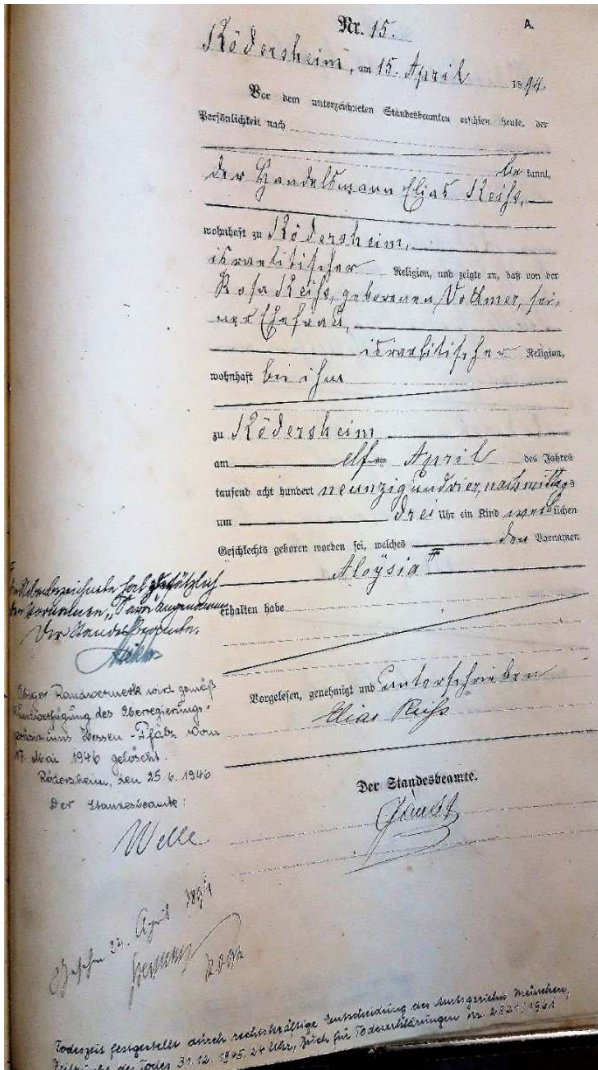 Nr. 15.
A.
Rödersheim, am 15. April 1894.
Vor dem unterzeichneten Standesbeamten erschien heute, der
Persönlichkeit nach
be kannt,
der Handelsmann Elias Reiß,
wohnhaft zu Rödersheim,
israelitischer Religion, und zeigte an, daß von der
Rosa Reiß, geborenen Vollmer, sei-
ner Ehefrau,
israelitischer Religion,
wohnhaft bei ihm
zu Rödersheim
am elf April des Jahres
tausend acht hundert neunzig und vier, nachmittags
um drei Uhr ein Kind weiblichen
Geschlechts geboren worden sei, welches den Vornamen
Aloÿsia
erhalten habe
Vorgelesen, genehmigt und unterschrieben
Elias Reiß
Der Standesbeamte.
Nebenbezeichnete hat zusätzlich
den Vornamen „Sara" angenommen
Der Standesbeamte.
Obiger Randvermerk wird gemäß
Rundverfügung des Oberregierungs-
präsidiums Hessen-Pfalz vom
17. Mai 1946 gelöscht.
Rödersheim, den 25.6.1946
Der Standesbeamte:
Welle
Gesehen 24. April 1894
Todeszeit festgestellt durch rechtskräftige Entscheidung des Amtsgerichts München,
Zeitpunkt des Todes 31.12.1945, 24 Uhr, Buch für Todeserklärungen Nr.